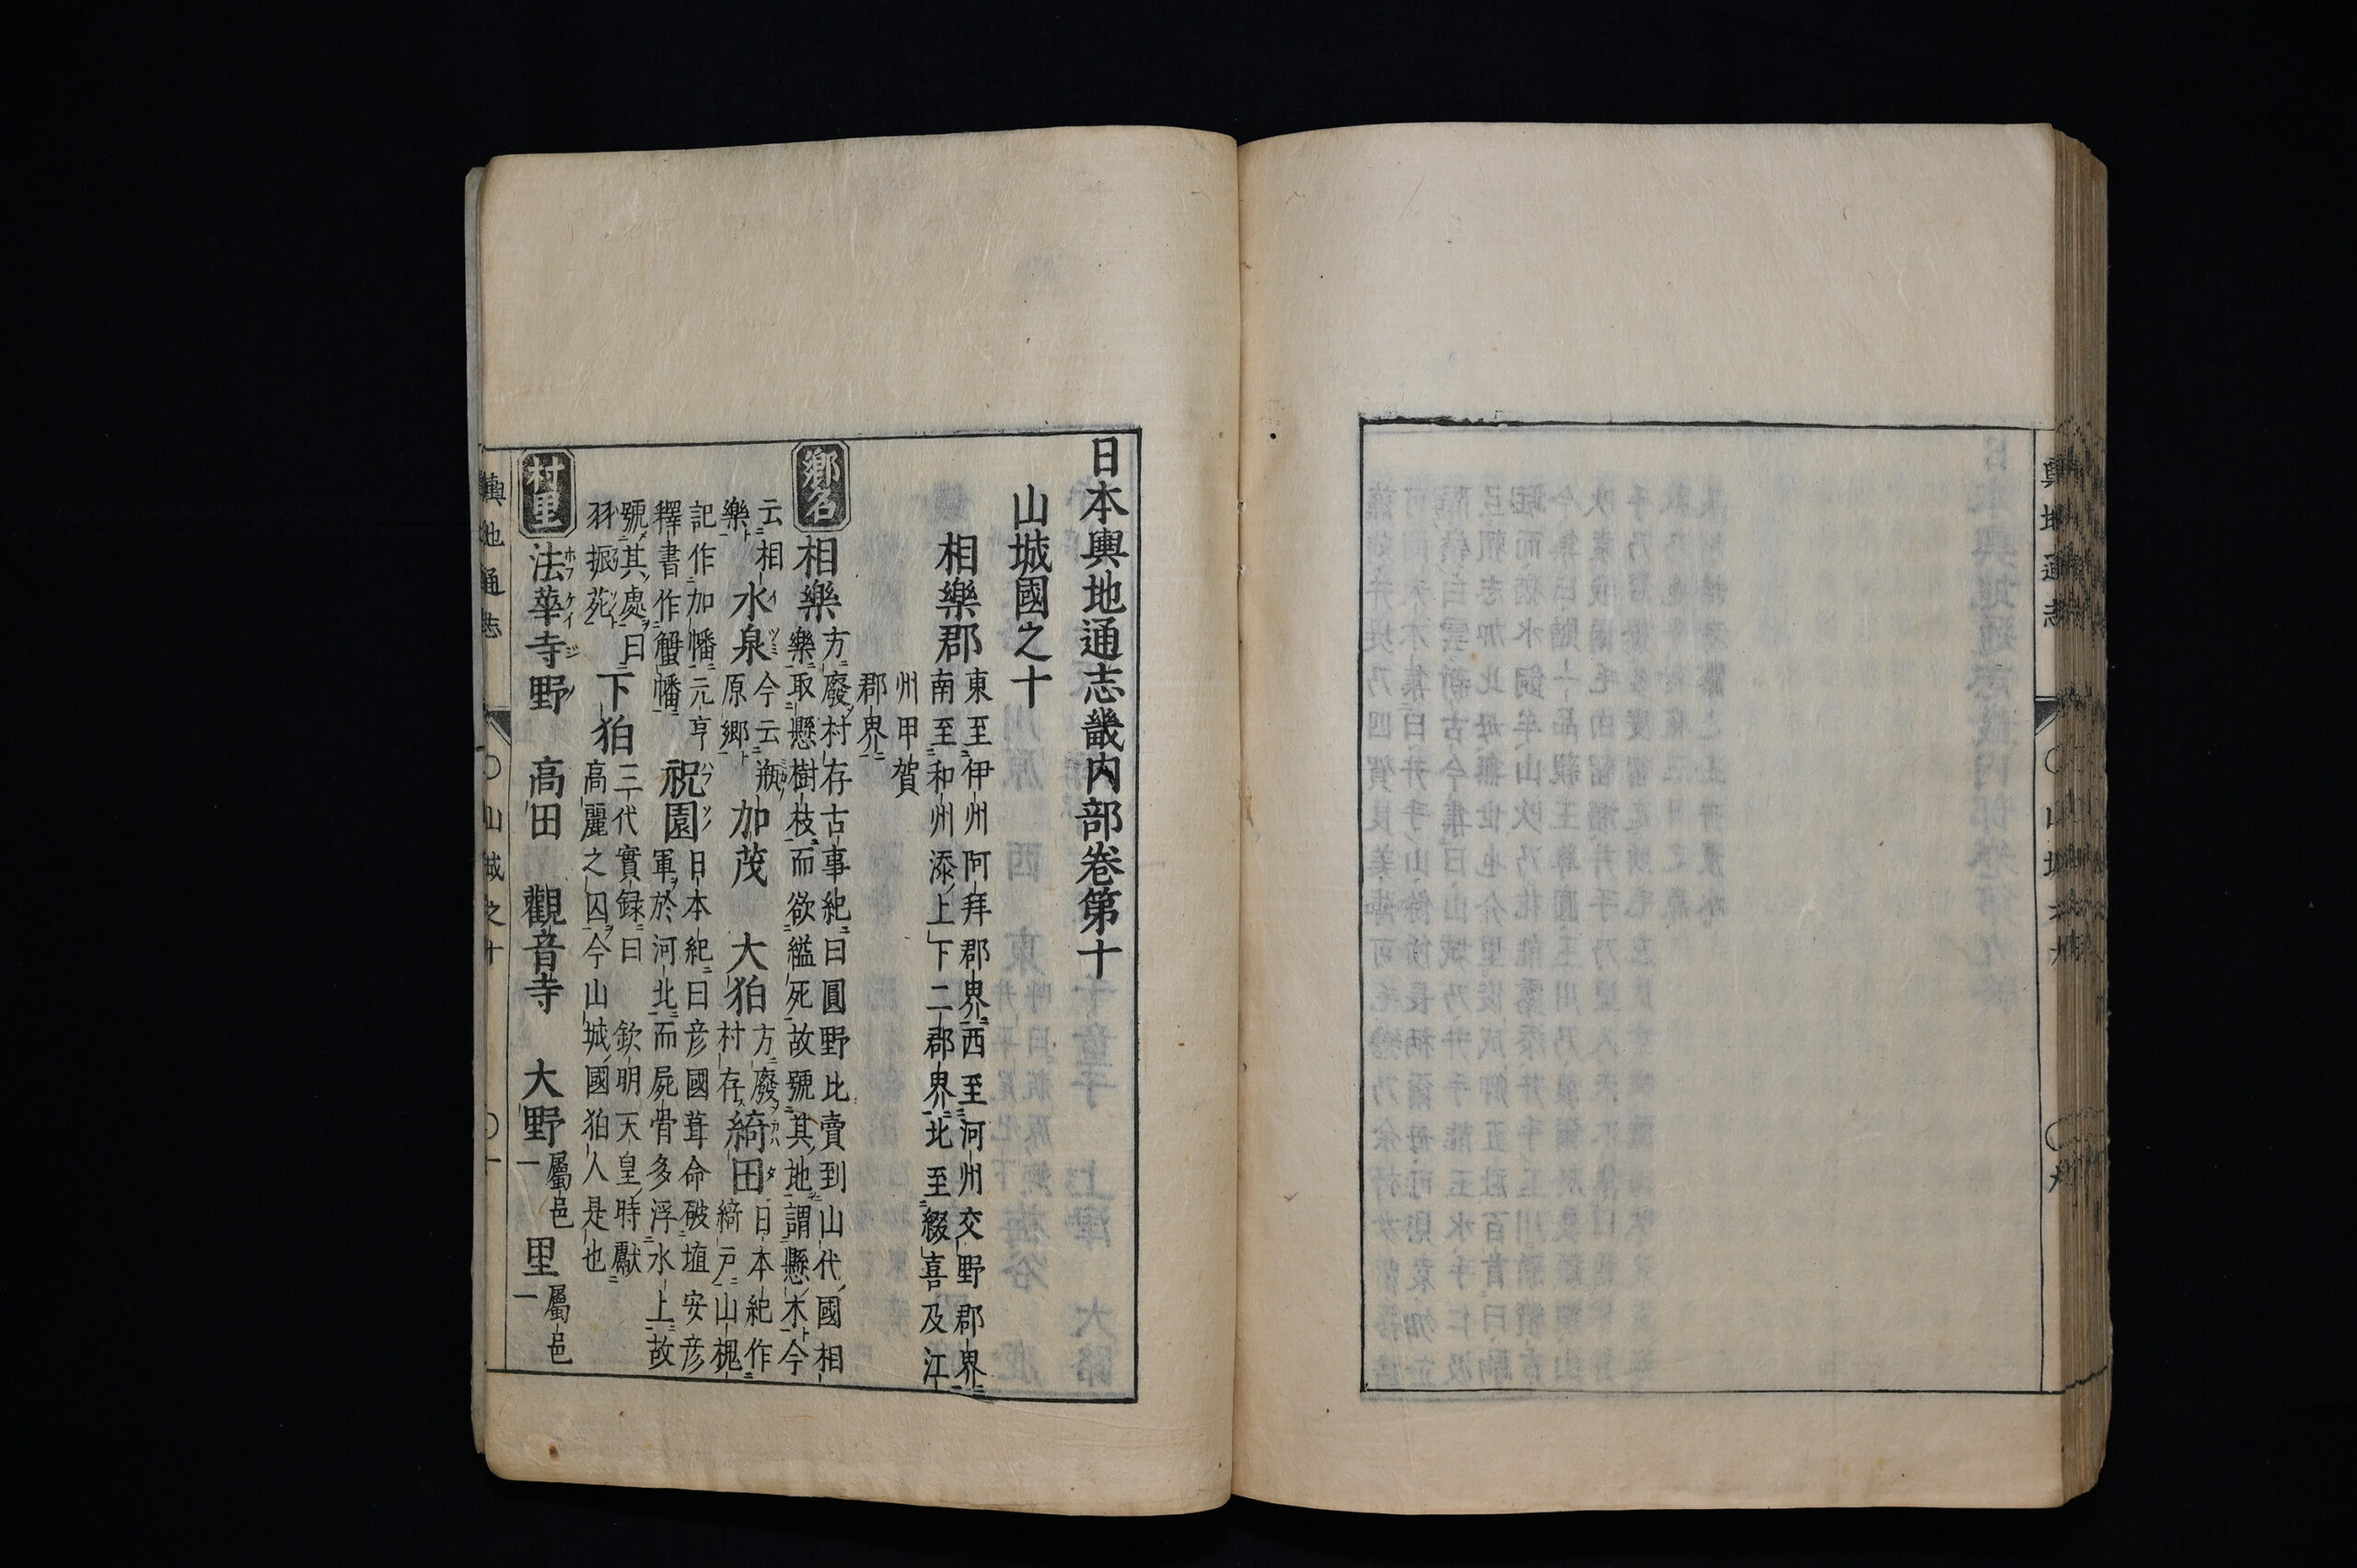 日本輿地通志畿内部卷第十
山城國之十
相樂郡
東至伊州阿拜郡界西至河州交野郡界
南至和州添上下二郡界北至綴喜及江
州甲賀
郡界
鄉名
相樂
方廢村存古事紀曰圓野比賣到山代國相
樂取懸樹枝而欲縊死故號其地謂懸木今
云相
樂
水泉
今云瓶
原鄉
加茂
大狛
方廢
村存
綺田
日本紀作
綺戸山槻
記作加幡元亨
釋書作蟹幡
祝園
日本紀曰彦國葺命破埴安彦
軍於河北而屍骨多浮水上故
號其處曰
羽振苑
下狛
三代實録曰欽明天皇時獻
高麗之囚今山城國狛人是也
村里
法華寺野
高田
觀音寺
大野
屬邑
一
里
屬邑
一
輿地通志
〇山城之十
〇一
輿地通志